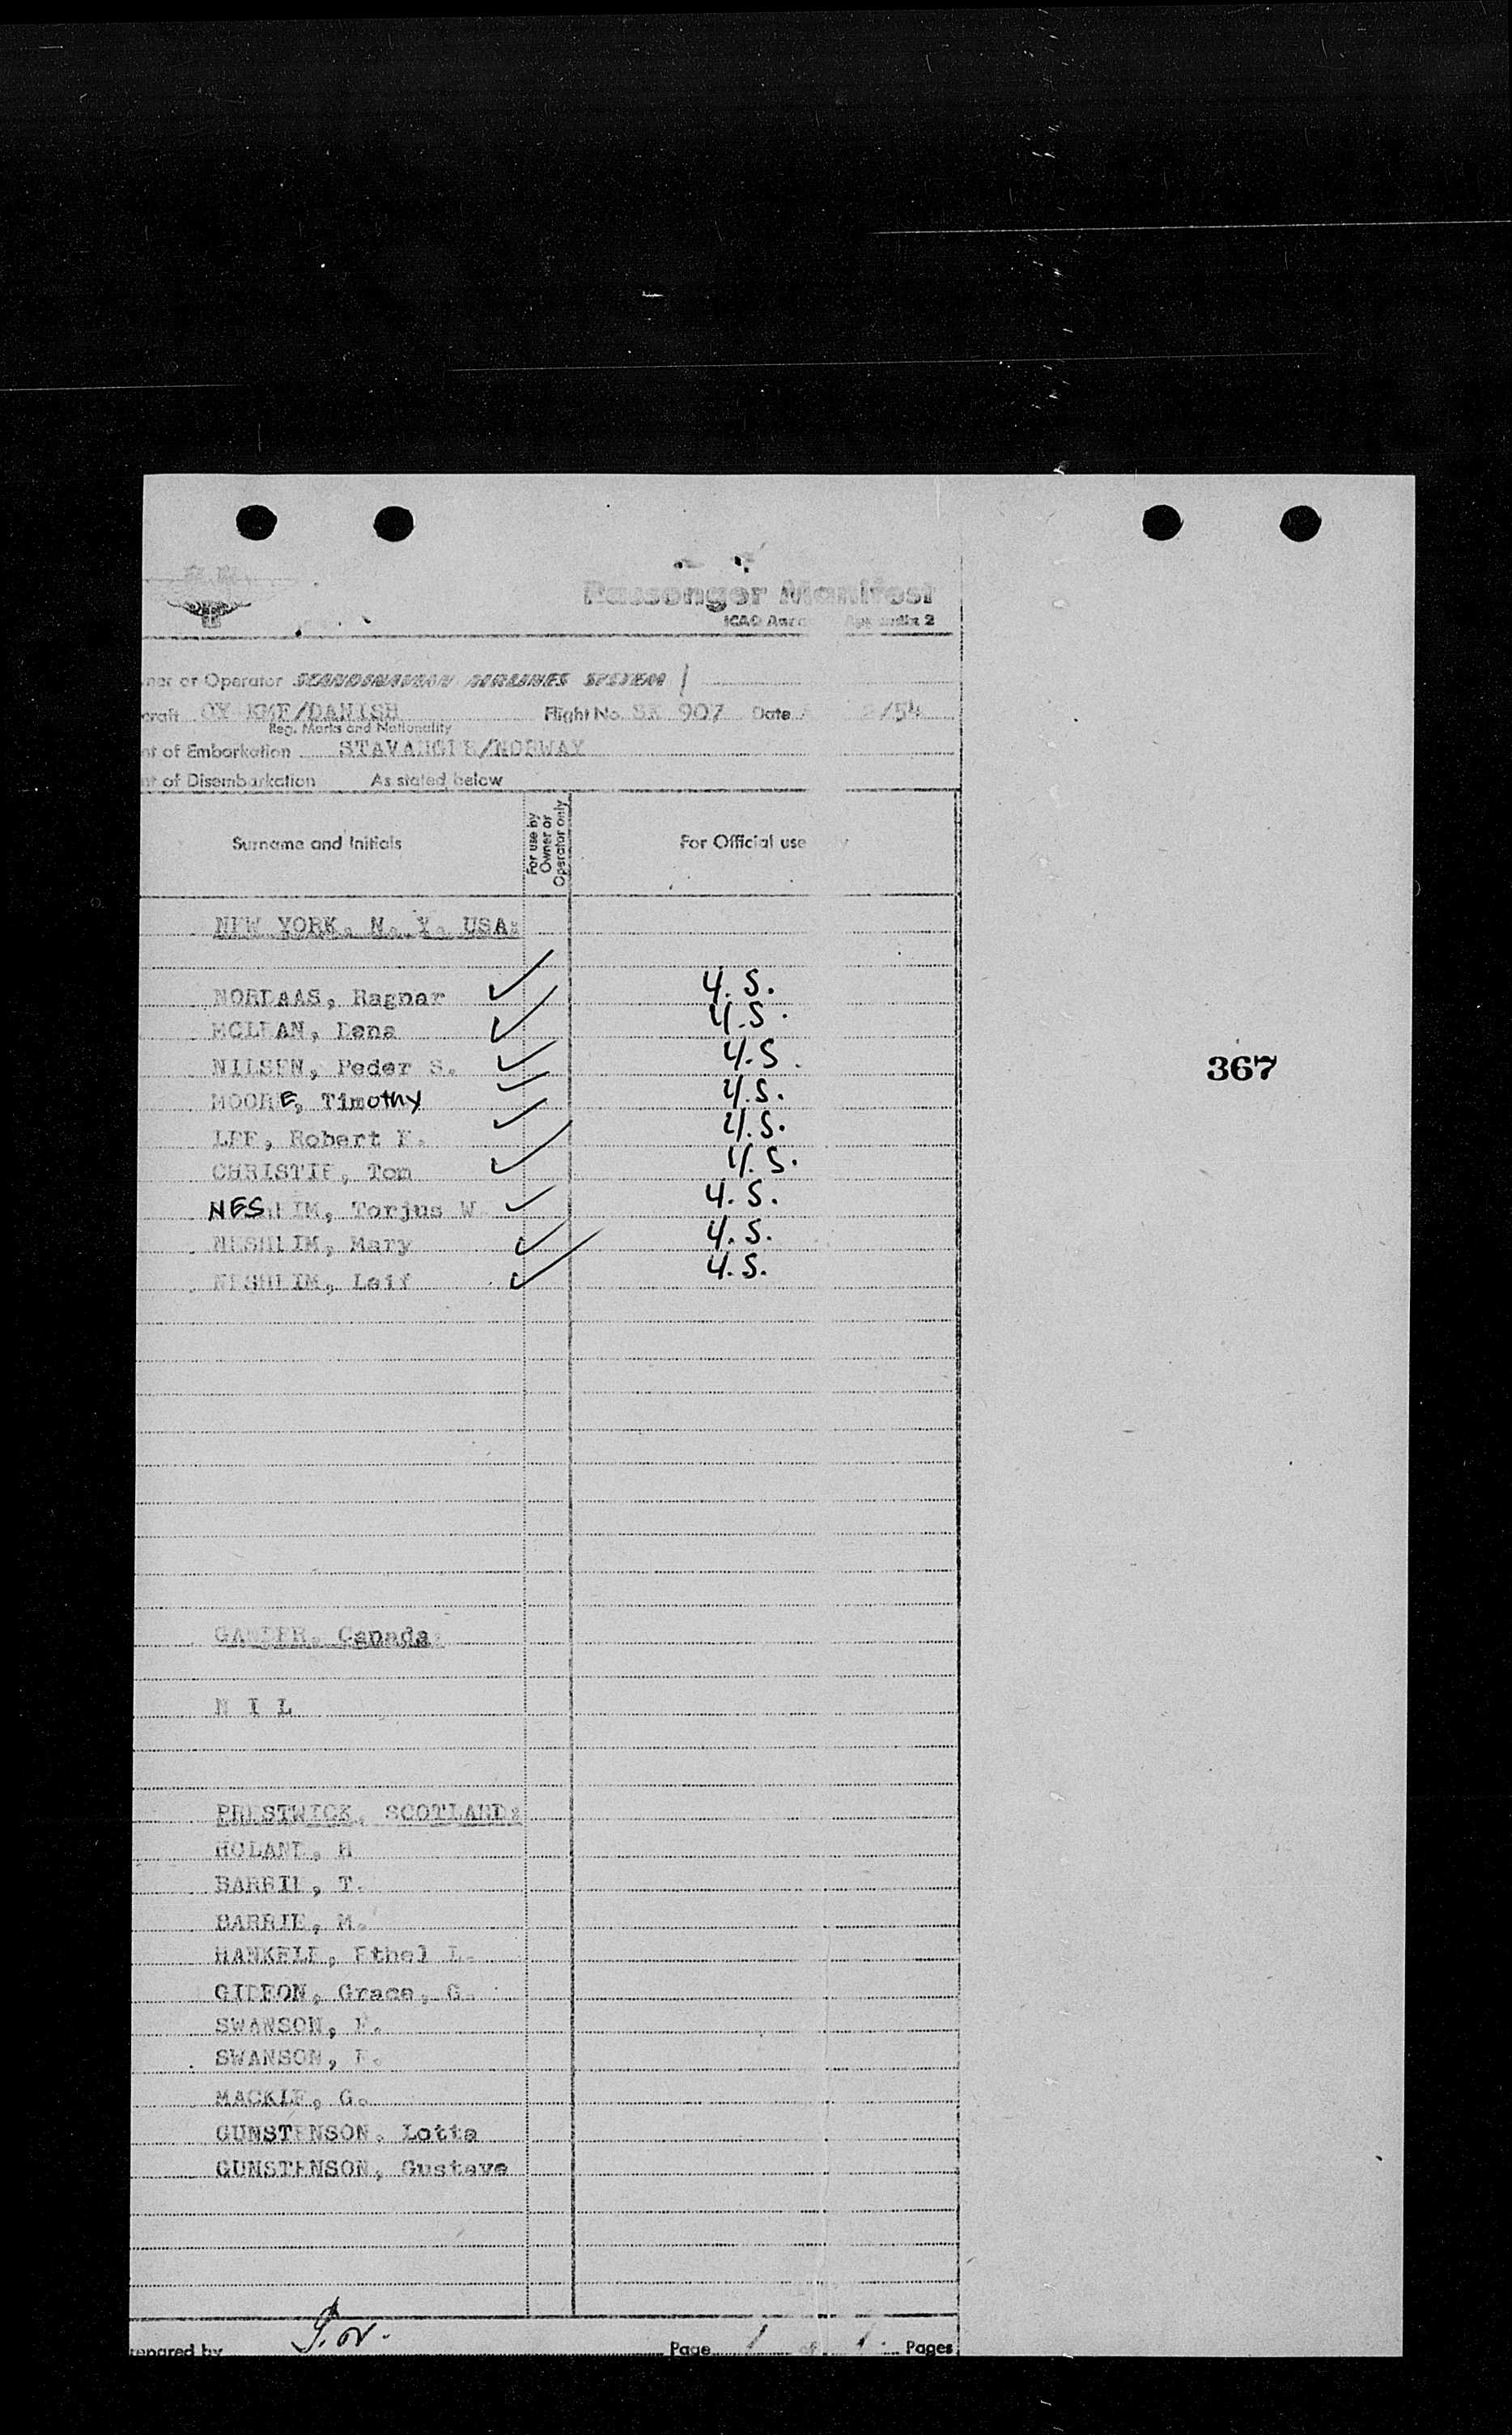 Passenger Manifest
ICAO Appendix 2
ner or Operator SCANDINAVIAN AIRLINES SYSTEM
craft OY KMF/DANISH Flight No. SK 907 Date /54
Reg. Marks and Nationality
nt of Embarkation STAVANGER/NORWAY
nt of Disembarkation As stated below
Surname and Initials
For use by Owner or Operator only
For Official use
NEW YORK, N. Y. USA:
NORDAAS, Ragnar U.S.
MCLEAN, Lena U.S.
NILSEN, Peder S. U.S.
367
MOORE, Timothy U.S.
LEE, Robert E. U.S.
CHRISTIE, Tom U.S.
NESHEIM, Torjus W U.S.
NESHEIM, Mary U.S.
NESHEIM, Leif U.S.
GANDER, Canada:
N I L
PRESTWICK, SCOTLAND:
HOLAND, H
BARRIE, T.
BARRIE, M.
HANKELE, Ethel L.
GIDEON, Grace, G.
SWANSON, E.
SWANSON, F.
MACKIE, G.
GUNSTENSON, Lotta
GUNSTENSON, Gustave
repared by
Page 1 of 1 Pages